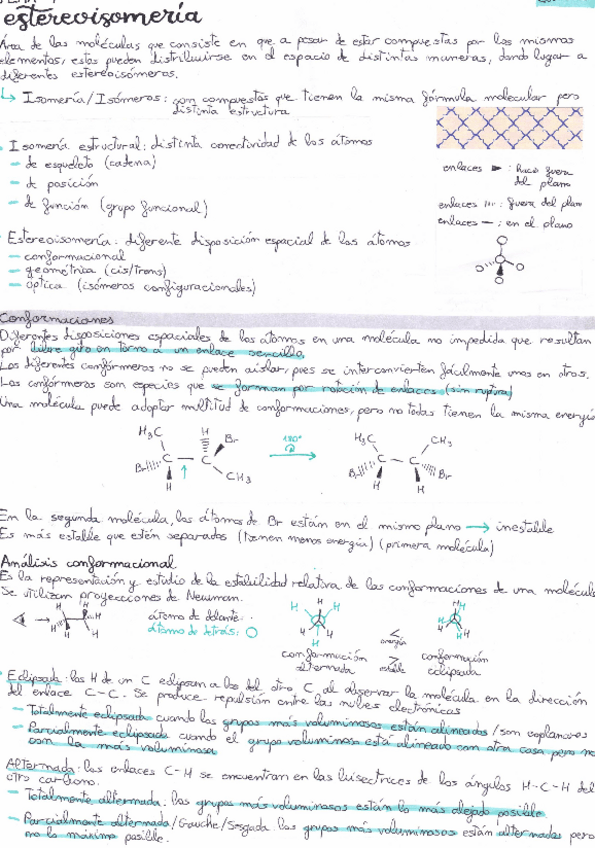 estereoisomería
Área de las moléculas que consiste en que a pesar de estar compuestas por los mismos
elementos, estas pueden distribuirse en el espacio de distintas maneras, dando lugar a
diferentes estereoisómeros.
↳ Isomería/Isómeros: son compuestos que tienen la misma fórmula molecular pero
distinta estructura
Isomería estructural: distinta conectividad de los átomos
- de esqueleto (cadena)
- de posición
- de función (grupo funcional)
enlaces : hacia fuera
del plano
enlaces : fuera del plano
enlaces — : en el plano
Estereoisomería: diferente disposición espacial de los átomos
- conformacional
- geométrica (cis/trans)
- óptica (isómeros configuracionales)
Conformaciones
Diferentes disposiciones espaciales de los átomos en una molécula no impedida que resultan
por libre giro en torno a un enlace sencillo.
Los diferentes confórmeros no se pueden aislar, pues se interconvierten fácilmente unos en otros.
Los confórmeros son especies que se forman por rotación de enlaces (sin ruptura)
Una molécula puede adoptar multitud de conformaciones, pero no todas tienen la misma energía
H3C H Br 180° H3C CH3
Br C — C C — C Br
H CH3 Br H H
En la segunda molécula, los átomos de Br están en el mismo plano → inestable
Es más estable que estén separados (tienen menos energía) (primera molécula)
Análisis conformacional
Es la representación y estudio de la estabilidad relativa de las conformaciones de una molécula
Se utilizan proyecciones de Newman.
átomo de delante: ·
átomo de detrás: O
conformación
alternada
< energía
> estable
conformación
eclipsada
Eclipsada: los H de un C eclipsan a los del otro C al observar la molécula en la dirección
del enlace C-C. Se produce repulsión entre las nubes electrónicas
- Totalmente eclipsada cuando los grupos más voluminosos están alineados / son coplanares
- Parcialmente eclipsada cuando el grupo voluminoso está alineado con otra cosa pero no
con la más voluminosa
Alternada: los enlaces C-H se encuentran en las bisectrices de los ángulos H-C-H del
otro carbono.
- Totalmente alternada: los grupos más voluminosos están lo más alejado posible.
- Parcialmente alternada/Gauche/Sesgada: los grupos más voluminosos están alternados pero
no lo máximo posible.